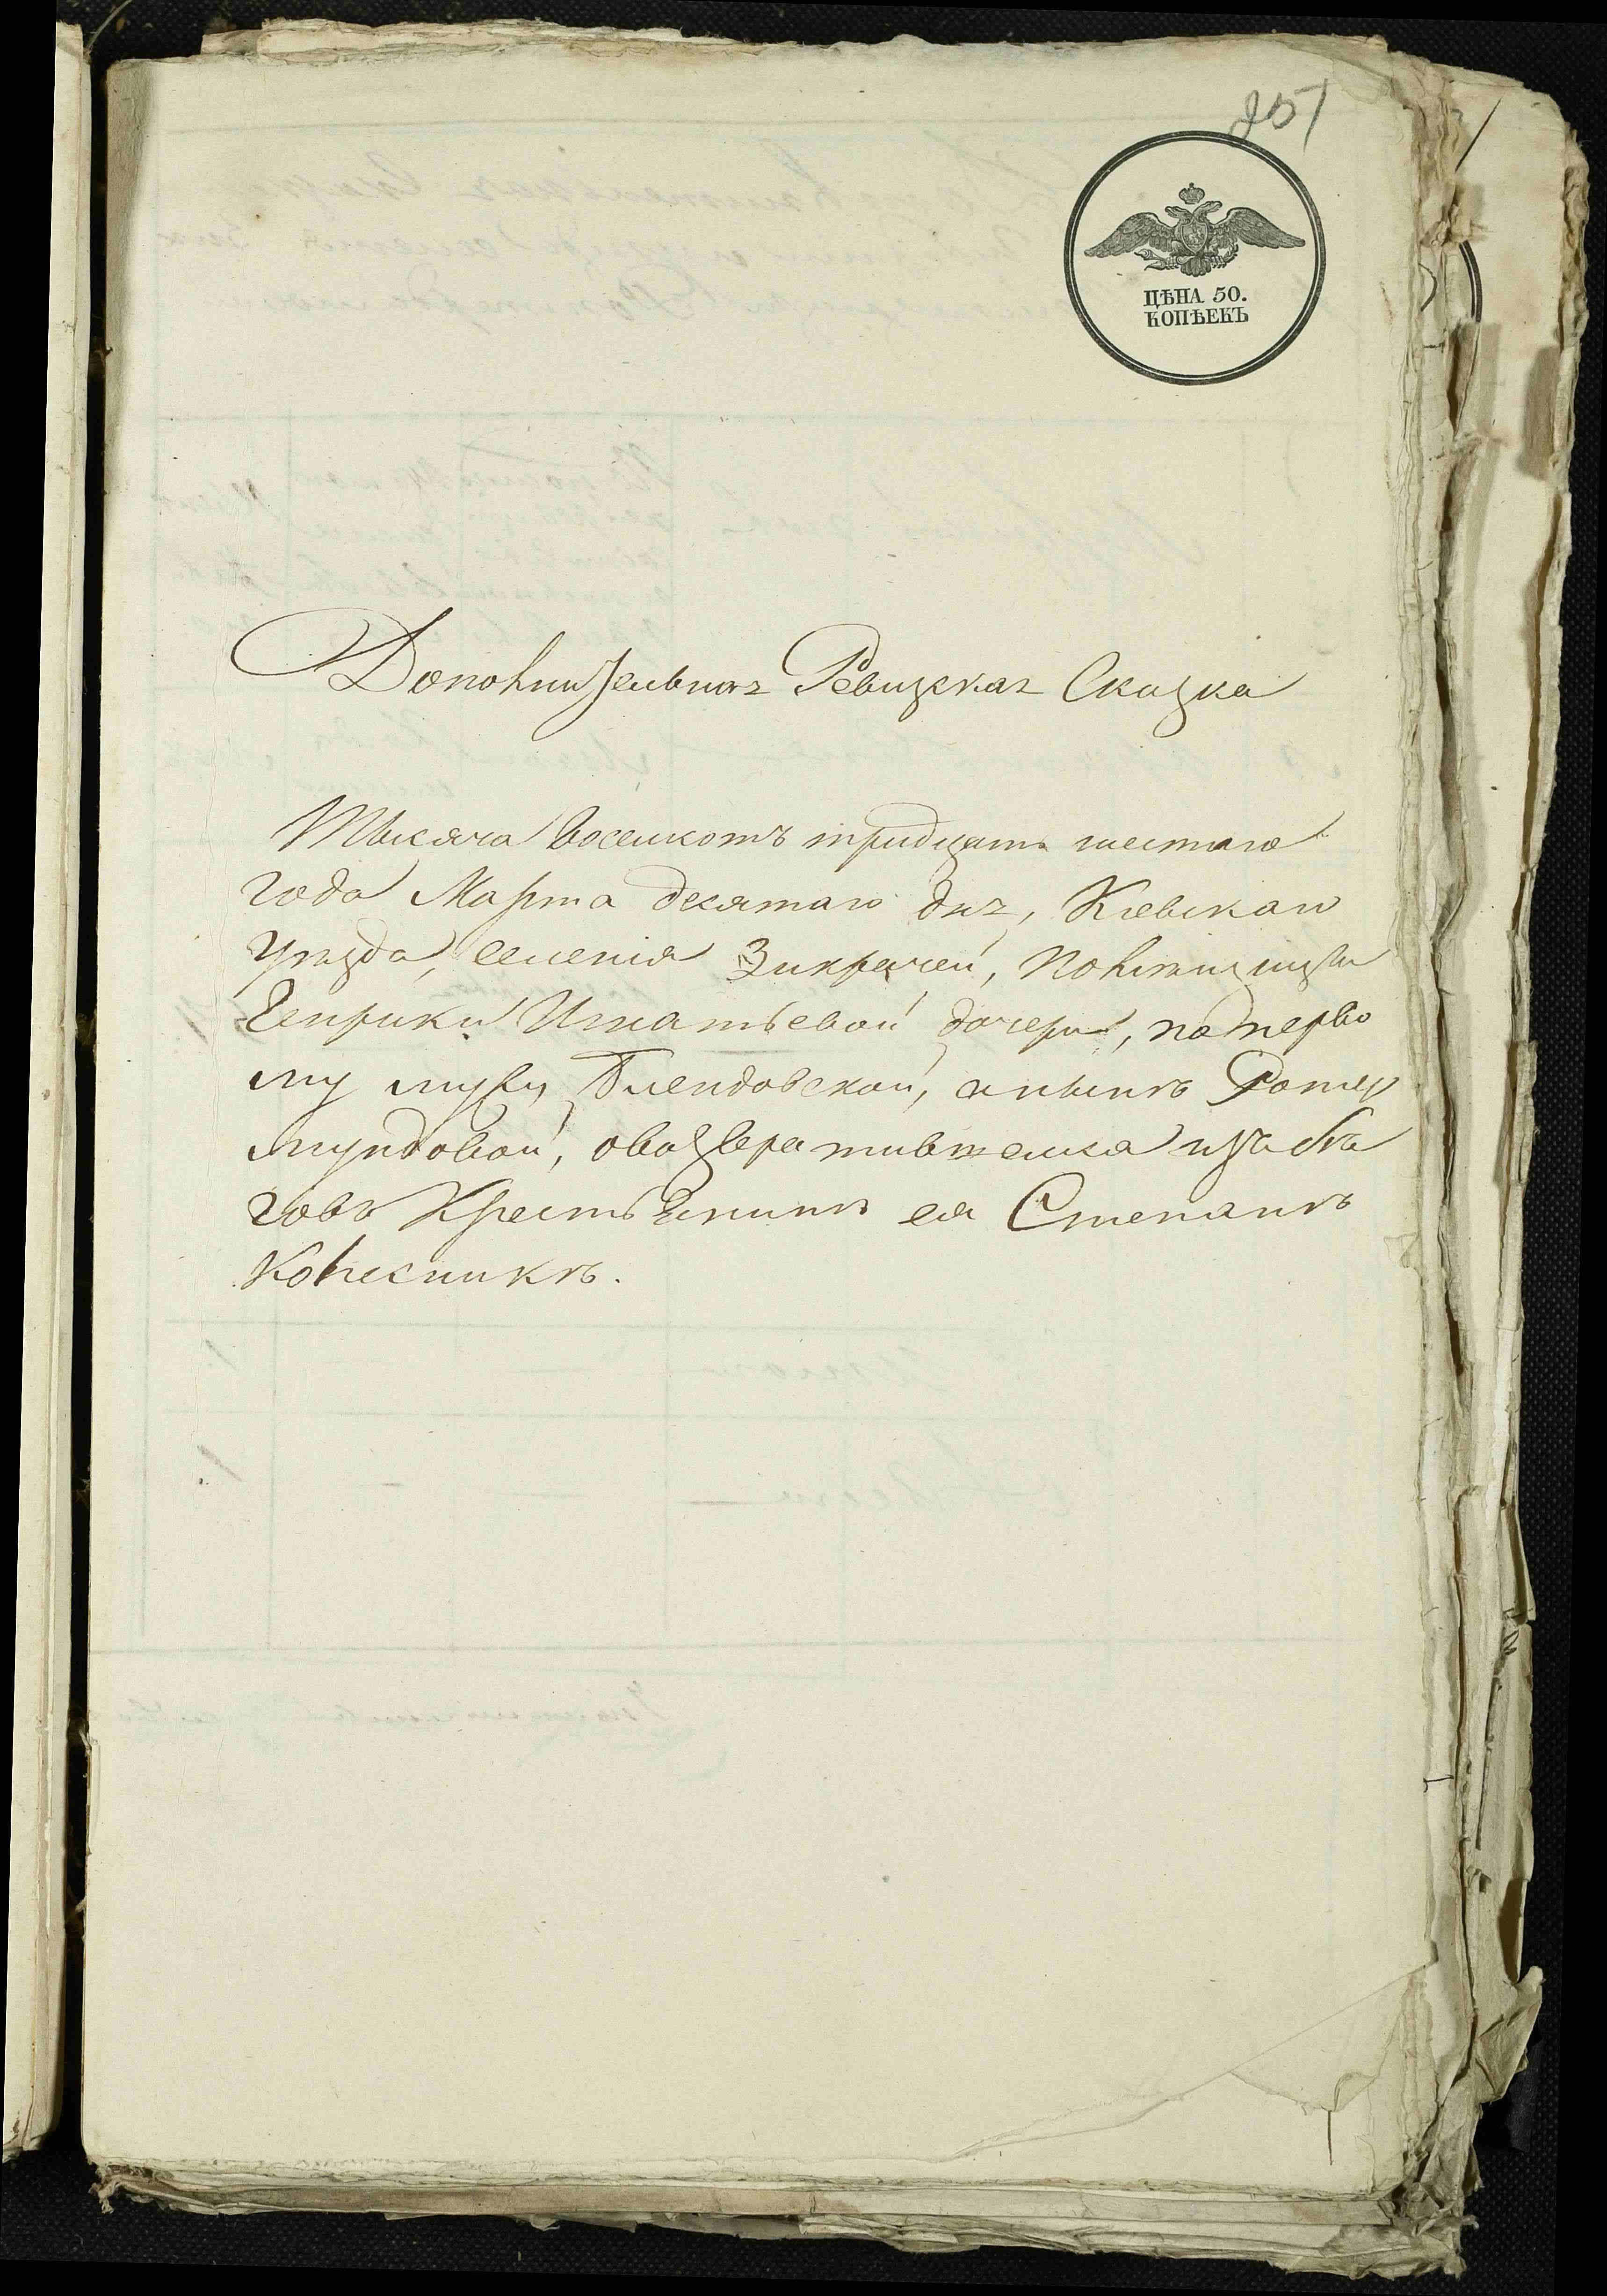 251
ЦѢНА 50.
КОПѢЕКЪ
Дополнительная Ревизская Сказка
Тысяча восемсотъ тридцать шестаго
года Марта десятаго дня, Кіевскаго
уѣзда, селенія Зикрачей, Помѣщицы
Генрики Игнатьевой дочери, по перво
му мужу Блендовской, а нынѣ Ротер
мундовой, овозвратившемся изъ бѣ
говъ Крестьянинѣ ея Степанѣ
Колесникѣ.